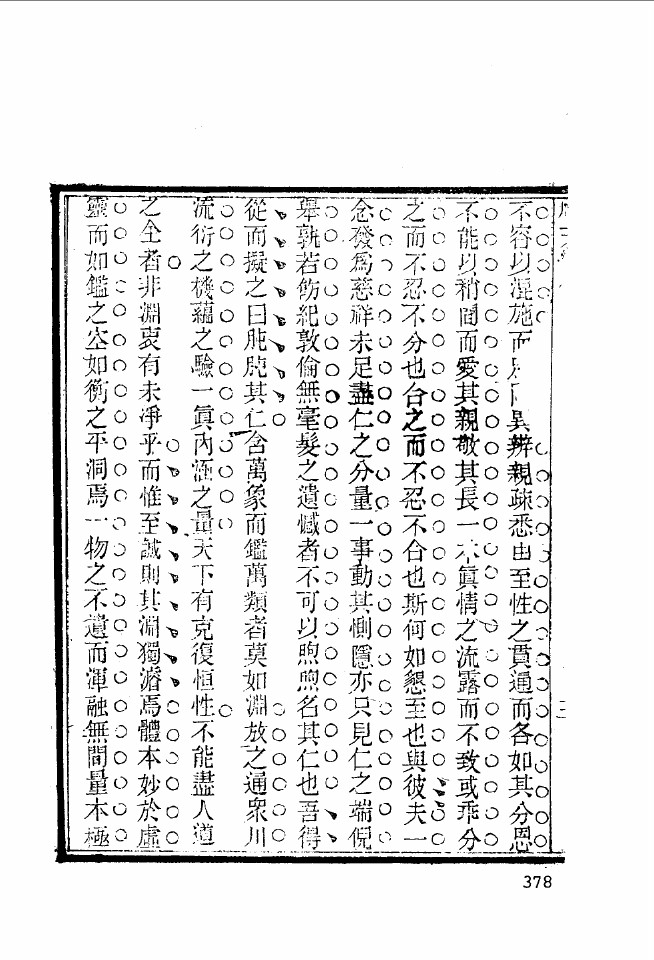 不容以混施而異辨親疎悉由至性之貫通而各如其分恩
不能以稍間而愛其親敬其長一本眞情之流露而不致或乖分
之而不忍不分也合之而不忍不合也斯何如懇至也與彼夫一
念發爲慈祥未足盡仁之分量一事動其惻隱亦只見仁之端倪
舉孰若飭紀敦倫無毫髮之遺憾者不可以煦煦名其仁也吾得
從而擬之曰肫肫其仁含萬象而鑑萬類者莫如淵放之通衆川
流衍之機蘊之驗一眞內涵之量天下有克復恒性不能盡人道
之全者非淵衷有未淨乎而惟至誠則其淵獨濬焉體本妙於虛
靈而如鑑之空如衡之平洞焉一物之不遺而渾融無間量本極
378